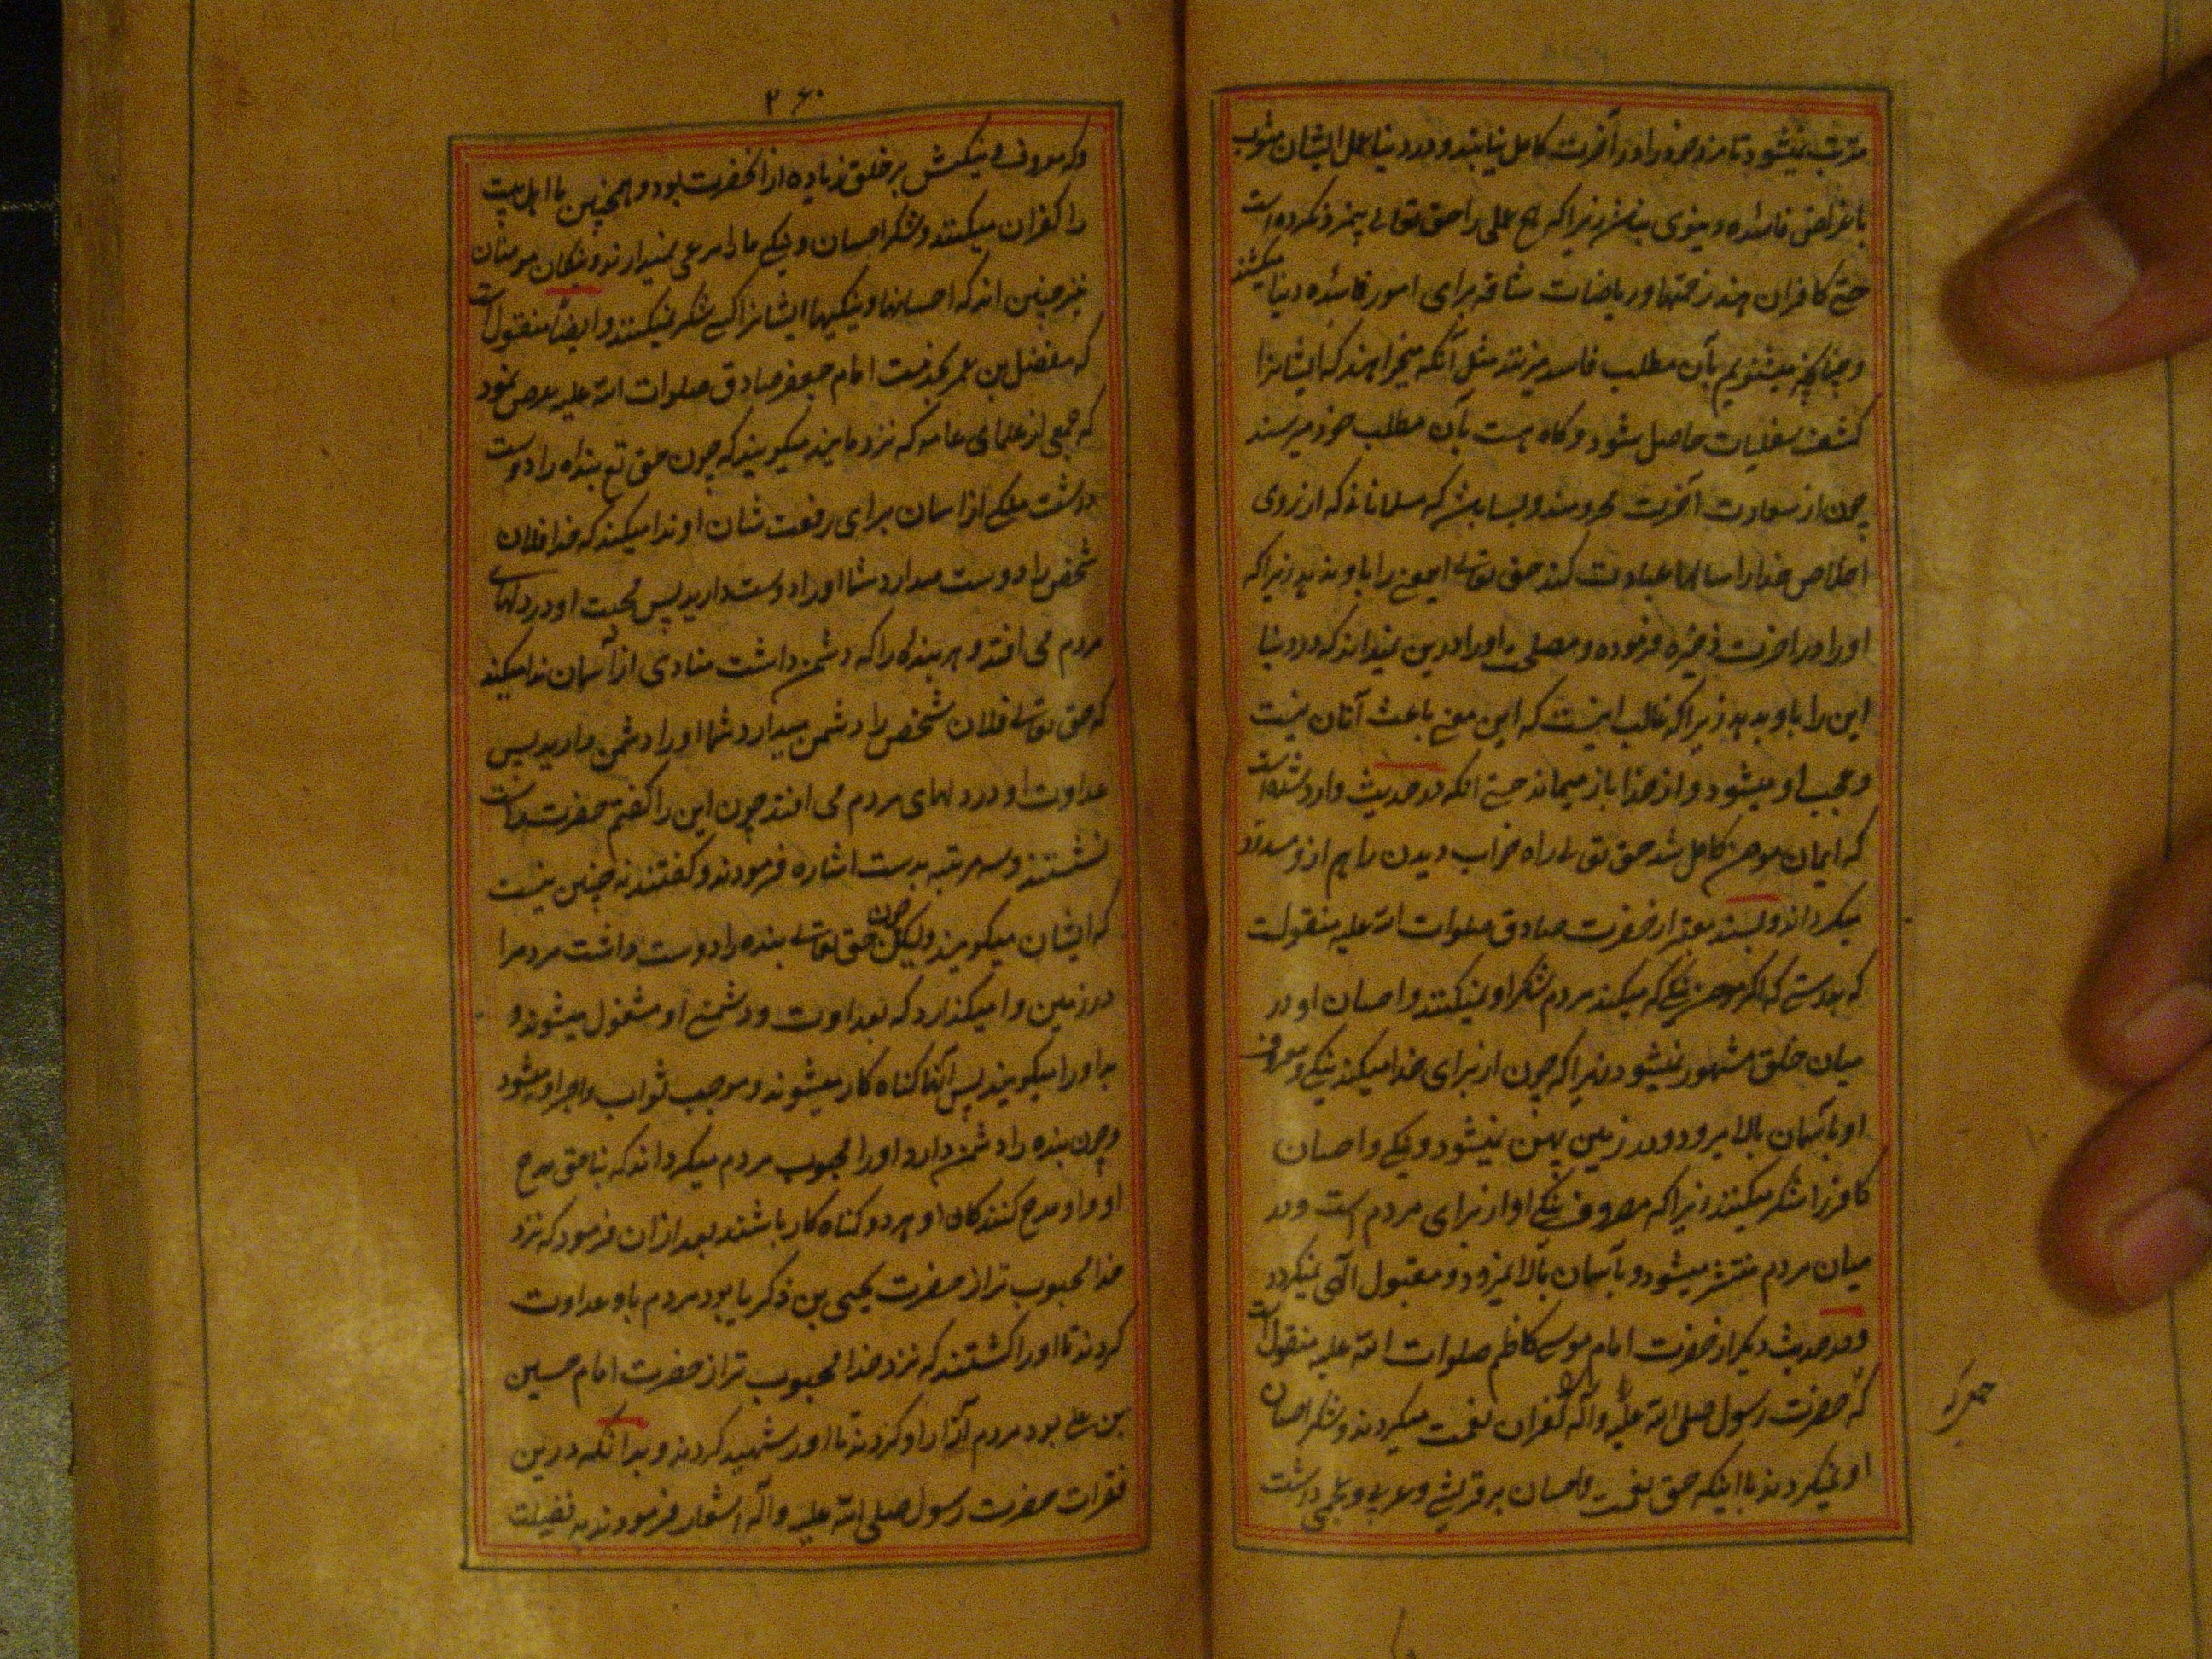 مترتب نمیشود تا مزد خود را در آخرت کامل بیابند و در دنیا عمل ایشان مشوب
باغراض فاسده دنیوی نباشد زیرا که هیچ عملی را حق تعالی بیمزد نکرده است
حتی کافران هند زحمتها و ریاضات شاقه برای امور فاسده دنیا میکشند
و چنانچه میشنویم بآن مطلب فاسد میرسند مثل آنکه میخواهند که ایشانرا
کشف سفلیات حاصل شود و کاه هست بآن مطلب خود میرسند
چون از سعادت آخرت محرومند و بسا باشد که مسلمانانند که از روی
اخلاص خدا را سالها عبادت کنند حق تعالی این معنی را باو ندهد زیرا که
او را در اخرت ذخیره فرموده و مصلحت او را درین نمیداند که در دنیا
این را باو بدهد زیرا که غالب اینست که این معنی باعث آنان نیست
و عجب او میشود و از خدا باز میماند حتی انکه در حدیث وارد شده است
که ایمان مومن کامل شد حق تعالی راه خواب دیدن را هم ازو مسدود
میکرداند و بسند معتبر از حضرت صادق صلوات الله علیه منقولست
که بدرستی که اکر مومن نیکی که میکند مردم شکر او نمیکنند و احسان او در
میان خلق مشهور نمیشود زیرا که چون از برای خدا میکند نیکی و معروف
او بآسمان بالا میرود و در زمین پهن نمیشود و نیکی و احسان
کافر را شکر میکنند زیرا که معروف و نیکی او از برای مردم است و در
میان مردم منتشر میشود و بآسمان بالا نمیرود و مقبول الهی نمیکردد
و در حدیث دیکر از حضرت امام موسی کاظم صلوات الله علیه منقول است
که حضرت رسول صلی الله علیه و آله را کفران نعمت میکردند و شکر احسان
او نمیکردند با اینکه حق نعمت و احسان بر قریش و عرب و عجم داشت
۲۶۰
و که معروف و نیکیش بر خلق زیاده از انحضرت بود و همچنین ما اهل بیت
را کفران میکنند و شکر احسان و نیکی ما را مرعی نمیدارند و نیکان مومنان
نیز چنین اند که احسانها و نیکیهای ایشانرا کسی شکر نمیکنند و ایضاً منقول است
که مفضل بن عمر بخدمت امام جعفر صادق صلوات الله علیه عرض نمود
که جمعی از علمای عامه که نزد مایند میکویند که چون حق تع بنده را دوست
داشت ملکی از اسمان برای رفعت شان او ندا میکند که خدا فلان
شخص را دوست میدارد شما او را دوست دارید پس محبت او در دلهای
مردم می افتد و هر بنده را که دشمن داشت منادی از آسمان ندا میکند
که حق تعالی فلان شخص را دشمن میدارد شما او را دشمن دارید پس
عداوت او در دلهای مردم می افتد چون این را کفتم حضرت راست
نشستند و سه مرتبه بدست اشاره فرمودند و کفتند نه چنین نیست
که ایشان میکویند ولیکن چون حق تعالی بنده را دوست داشت مردم را
در زمین وا میکذارد که بعداوت و دشمنی او مشغول میشوند و
بد او را میکویند پس آنها کناه کار میشوند و موجب ثواب و اجر او میشود
و چون بنده را دشمن دارد او را محبوب مردم میکرداند که بناحق مدح
او و او مدح کنندکان او هر دو کناه کار باشند بعد از ان فرمود که نزد
خدا محبوب تر از حضرت یحیی بن ذکریا بود مردم باو عداوت
کردند تا او را کشتند که نزد خدا محبوب تر از حضرت امام حسین
بن علی بود مردم آزار او کردند تا او را شهید کردند و بدانکه درین
فقرات حضرت رسول صلی الله علیه و آله اشعار فرمودند به فضیلت